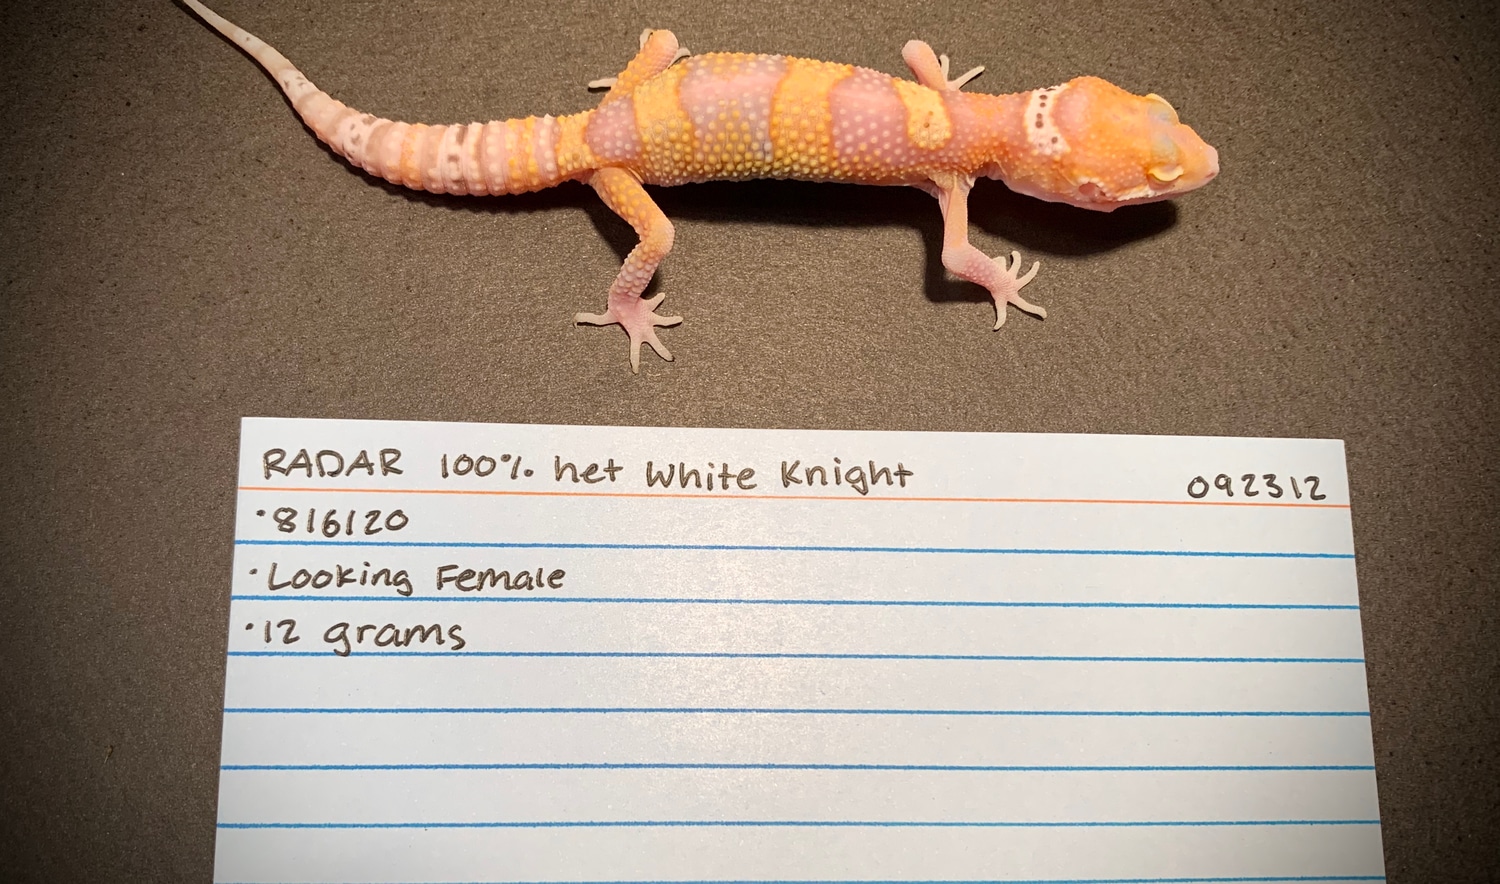 RADAR 100% het White Knight 092312
·816120
·Looking Female
·12 grams